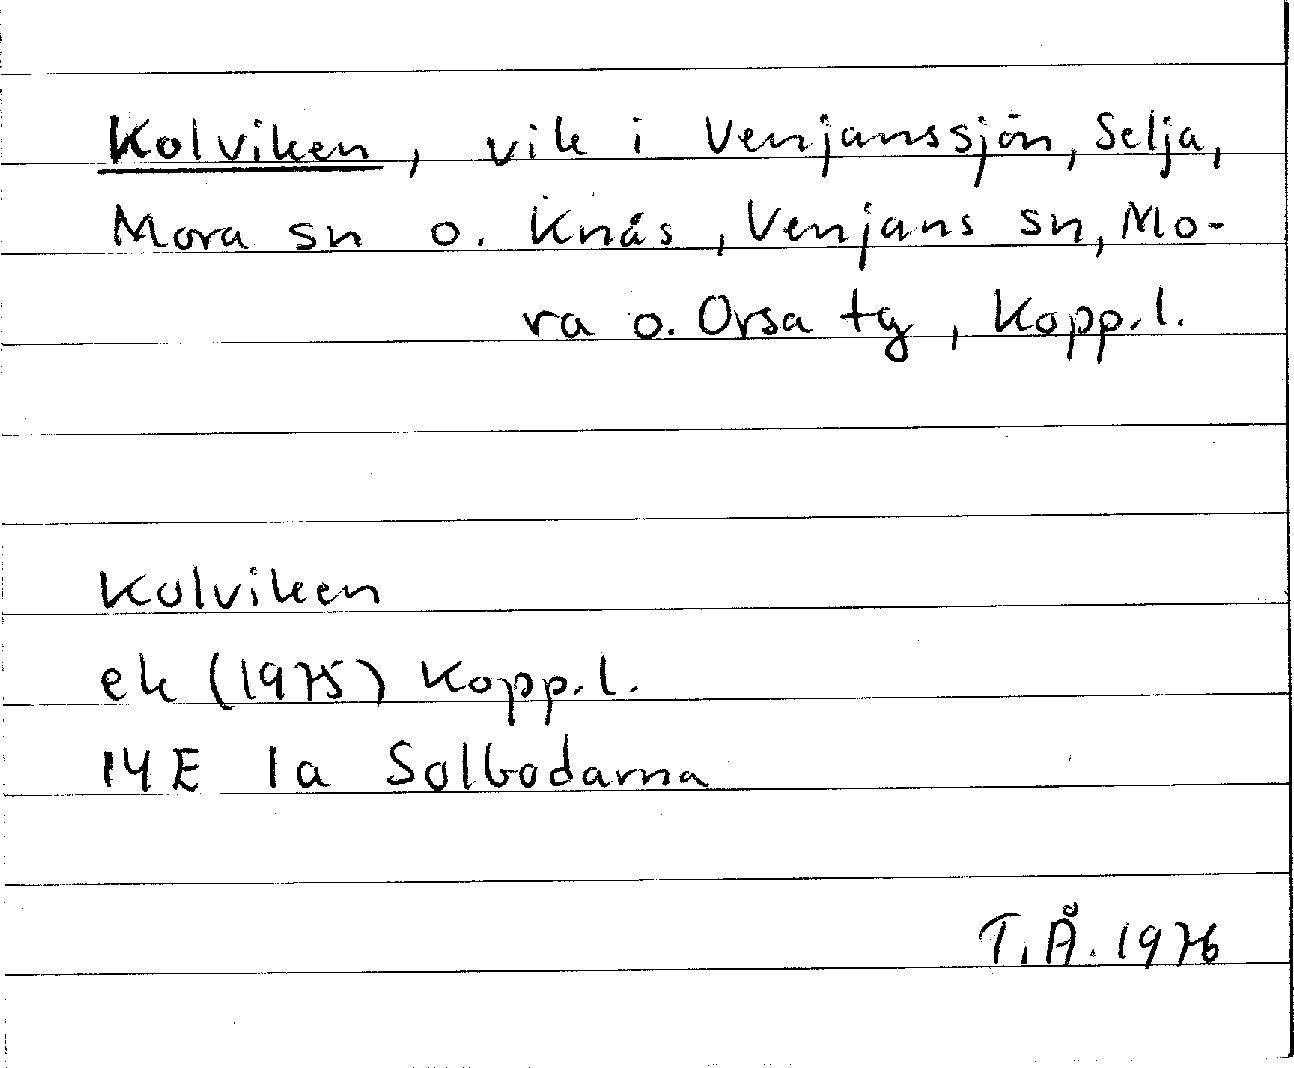 Kolviken, vik i Venjanssjön, Selja,
Mora sn o. Knås, Venjans sn, Mo-
ra o. Orsa tg, Kopp.l.
Kolviken
ek (1975) Kopp.l.
14E 1a Solbodarna
T.Å. 1976